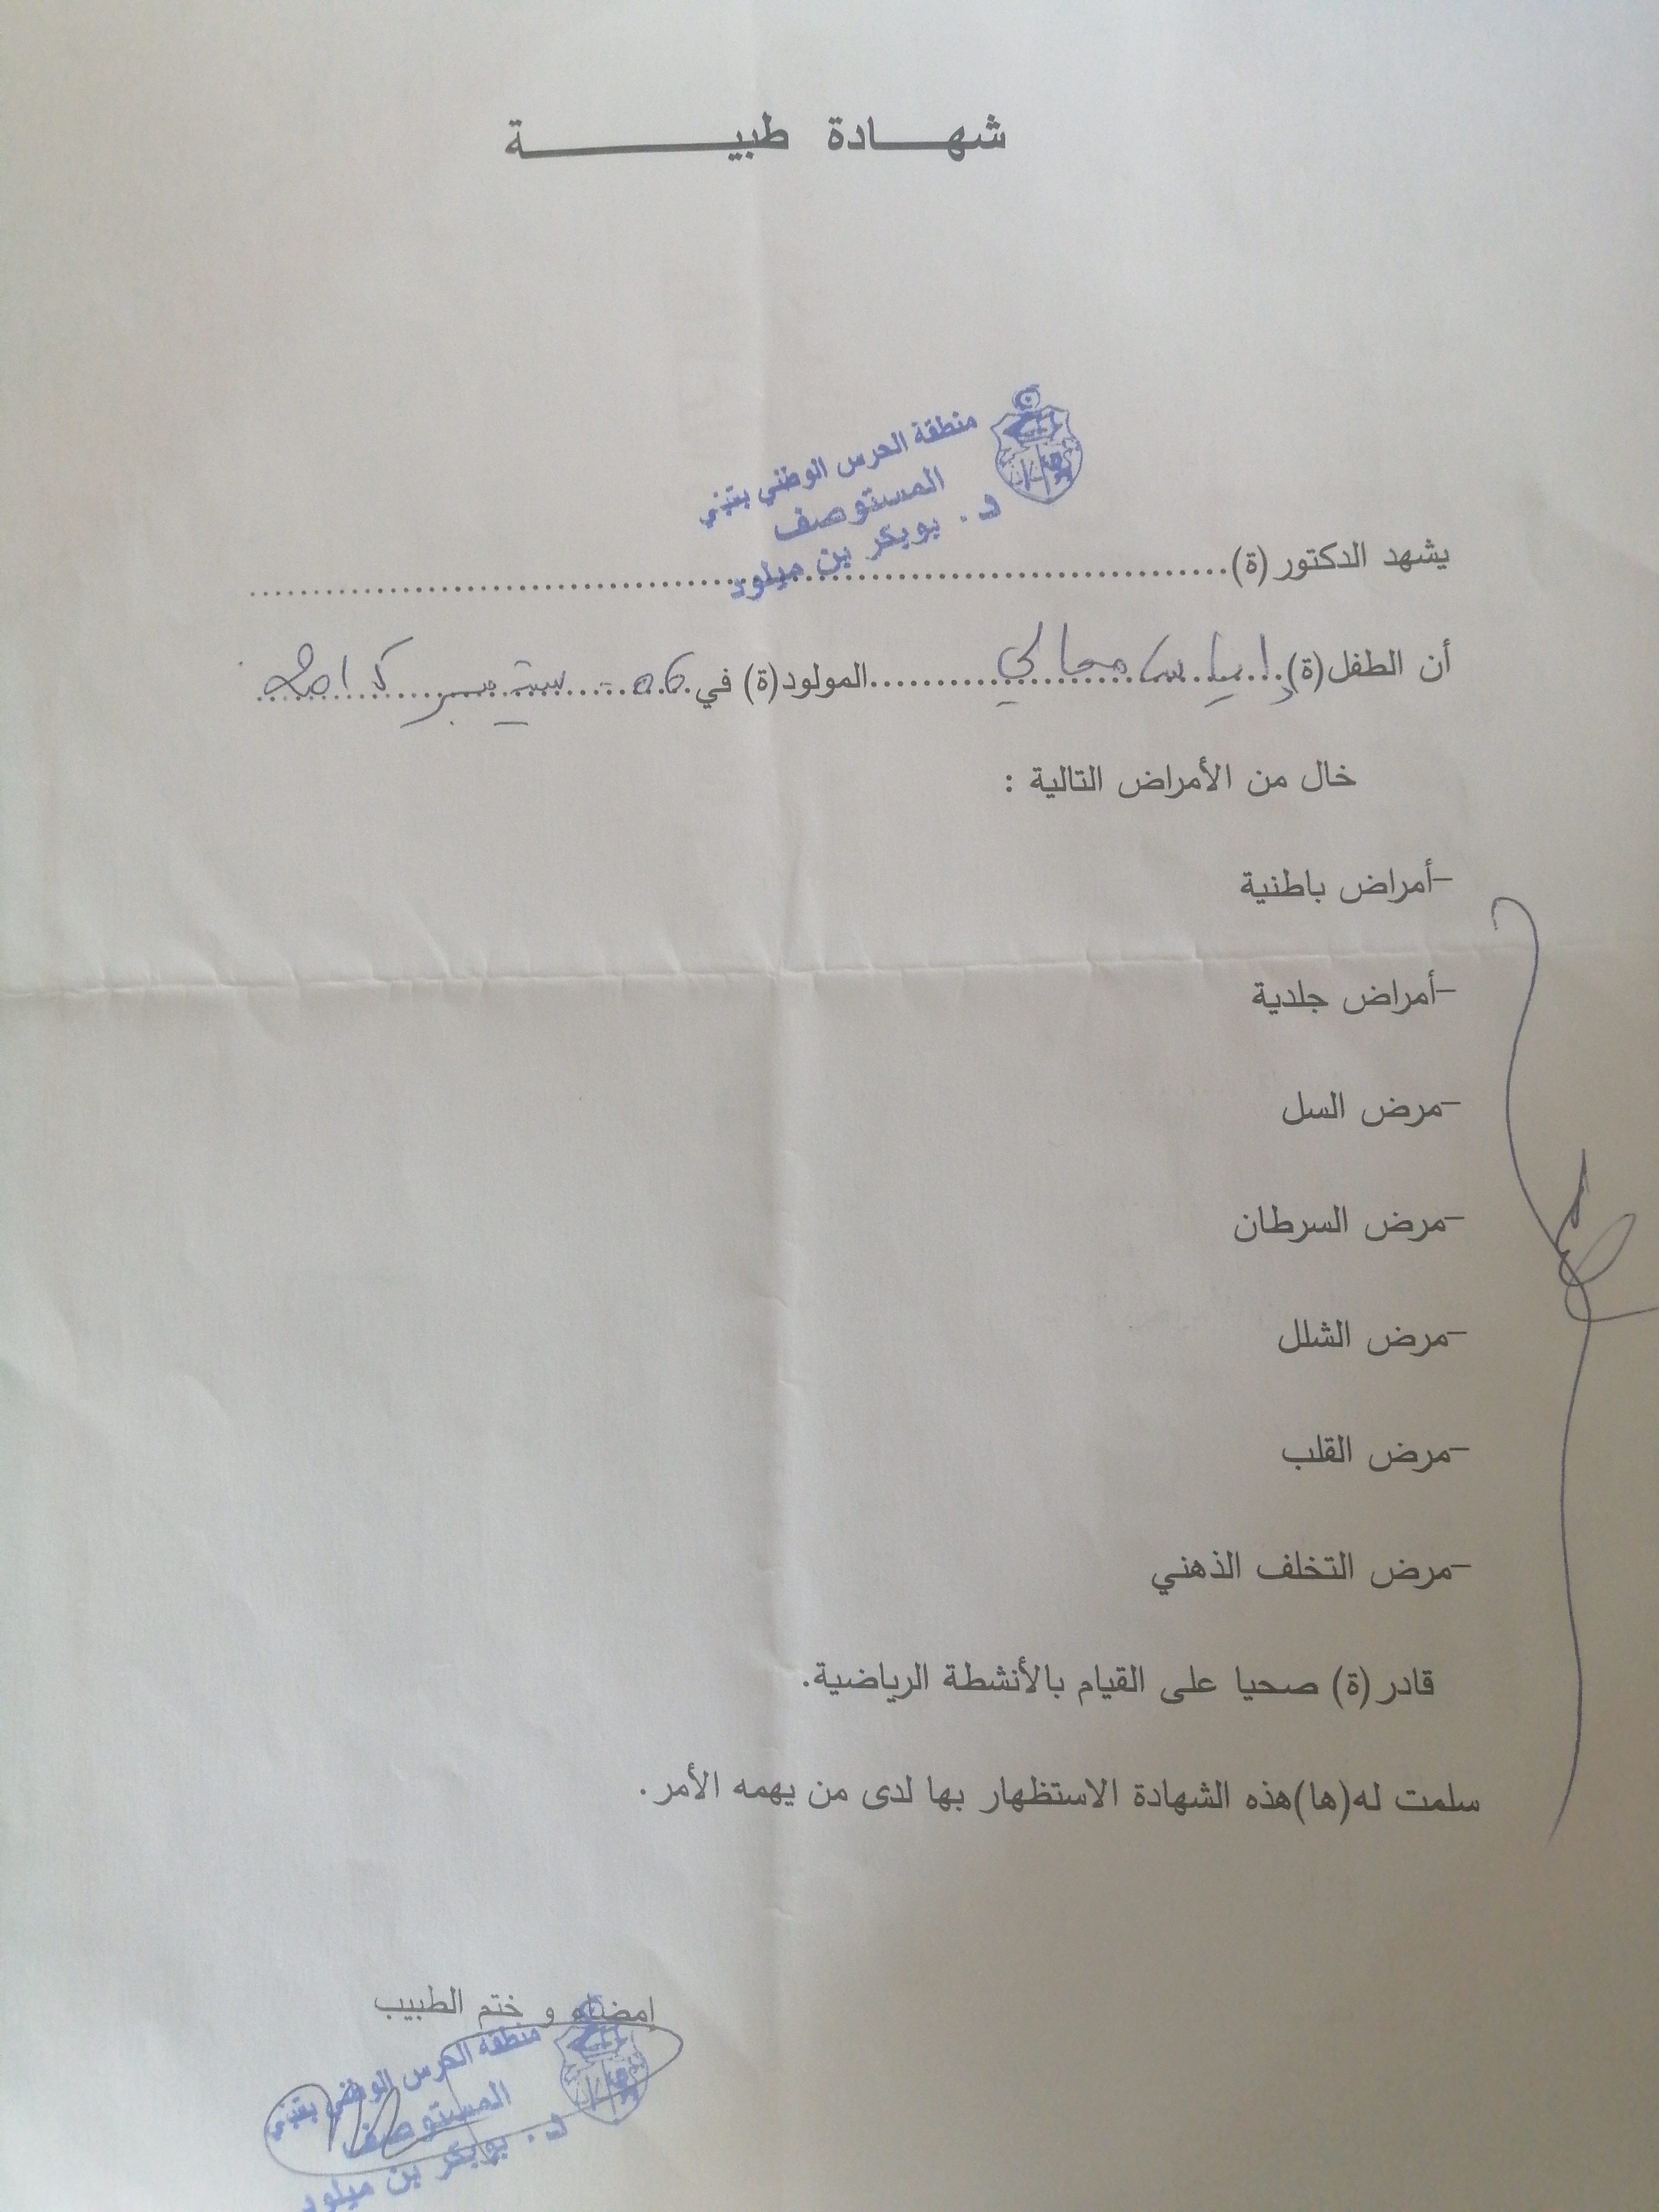 شهادة طبية
منطقة الحرس الوطني بقبلي
المستوصف
د. بوبكر بن ميلود
يشهد الدكتور (ة)
أن الطفل (ة) إياس المولود (ة) في 06 سبتمبر
خال من الأمراض التالية :
-أمراض باطنية
-أمراض جلدية
-مرض السل
-مرض السرطان
-مرض الشلل
-مرض القلب
-مرض التخلف الذهني
قادر (ة) صحيا على القيام بالأنشطة الرياضية.
سلمت له(ها)هذه الشهادة الاستظهار بها لدى من يهمه الأمر.
إمضاء و ختم الطبيب
منطقة الحرس الوطني بقبلي
المستوصف
د. بوبكر بن ميلود